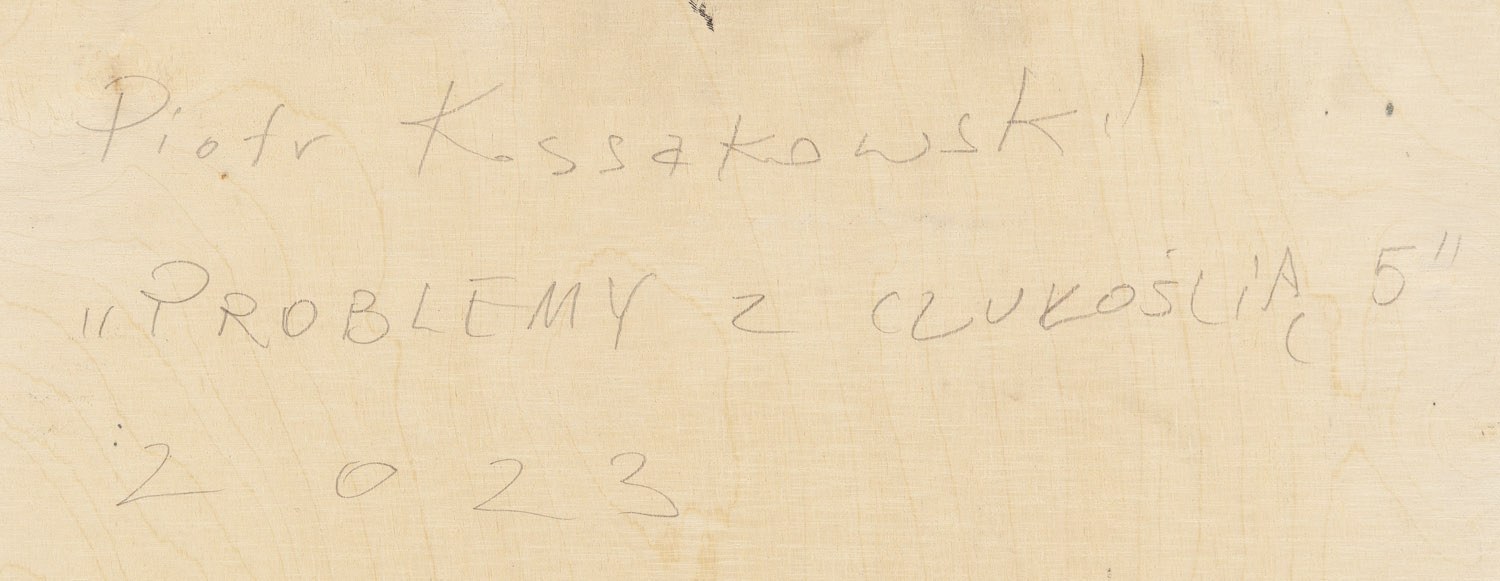 Piotr Kossakowski
„PROBLEMY Z CZUŁOŚCIĄ 5”
2023